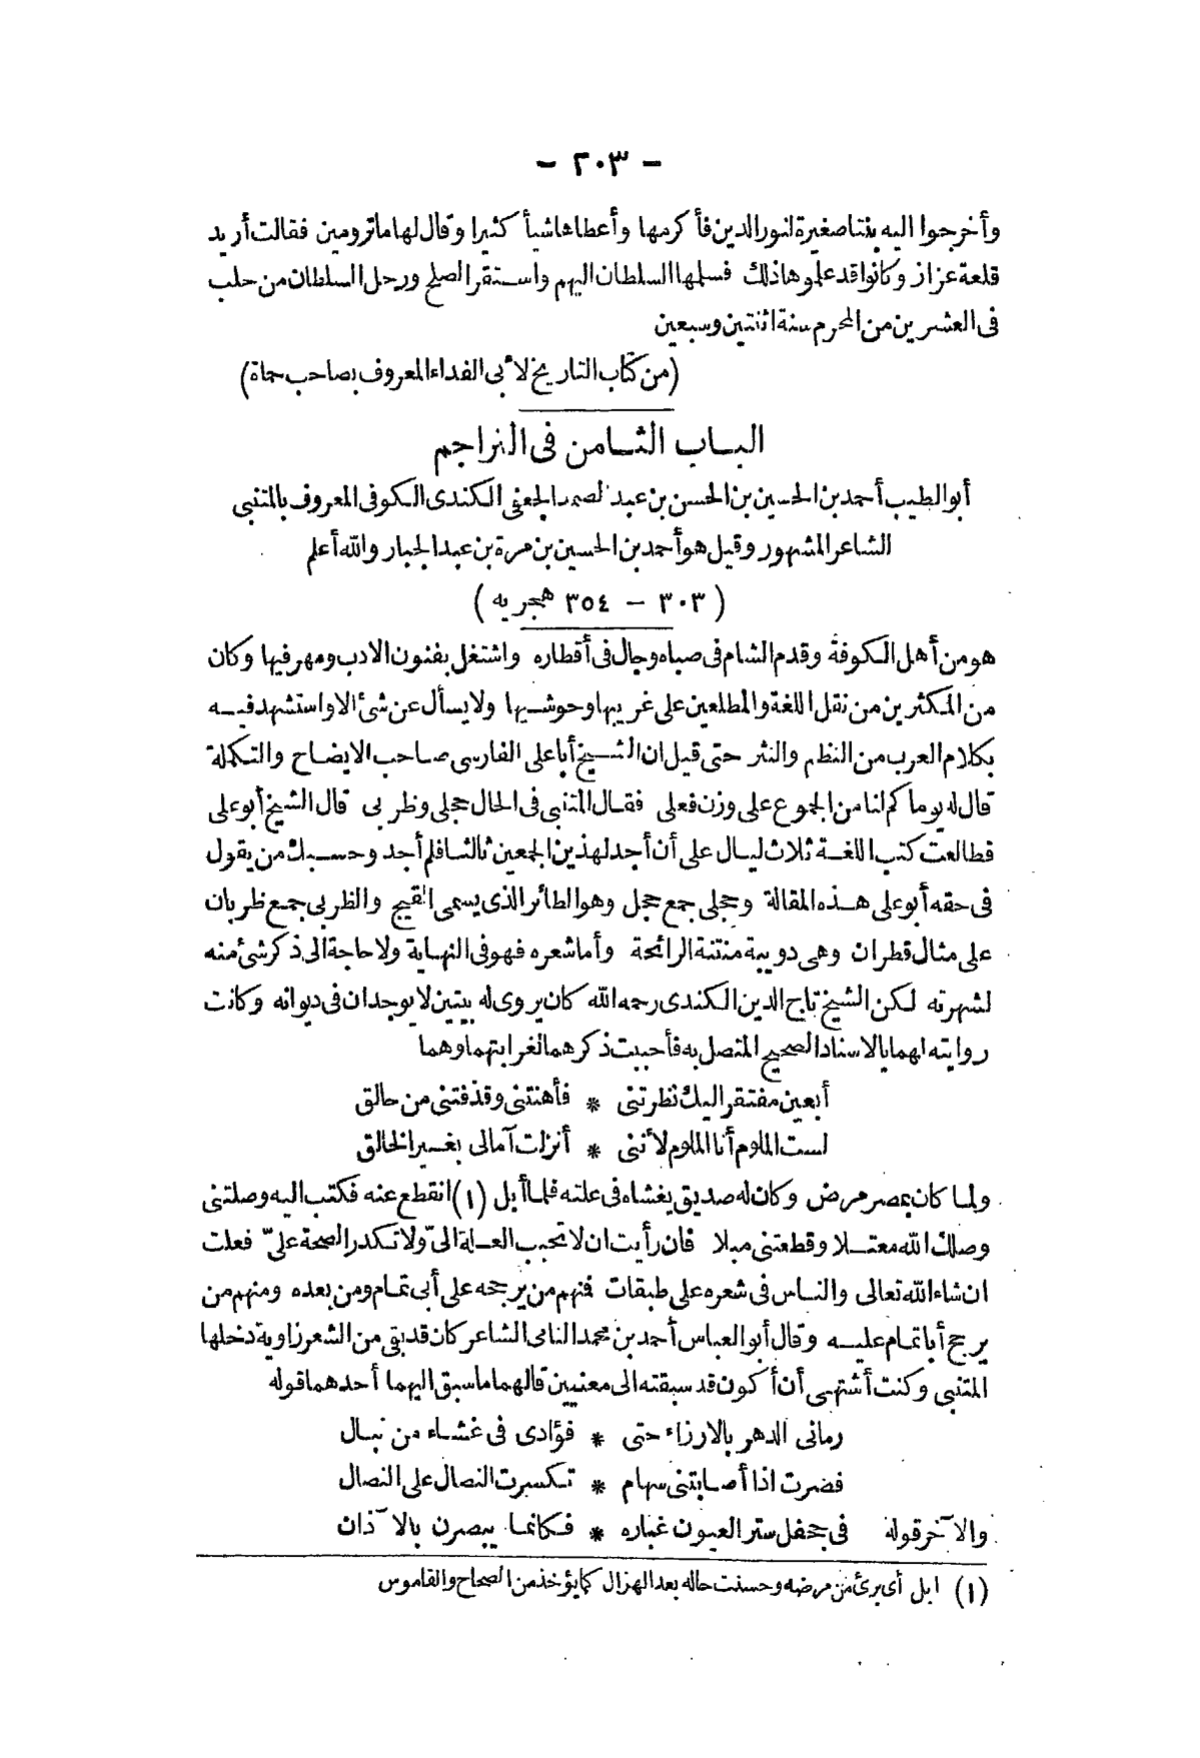 - ٢٠٣ -
وأخرجوا اليه بنتا صغيرة لنور الدين فأكرمها وأعطاها شيأ كثيرا وقال لها ما ترومين فقالت أريد
قلعة عزاز وكانوا قد علموها ذلك فسلمها السلطان اليهم واستقر الصلح ورحل السلطان من حلب
فى العشرين من المحرم سنة اثنتين وسبعين
(من كتاب التاريخ لأبى الفداء المعروف بصاحب حماة)
البـاب الثـامن فى التراجم
أبو الطيب أحمد بن الحسين بن الحسن بن عبد الصمد الجعفى الكندى الكوفى المعروف بالمتنبى
الشاعر المشهور وقيل هو أحمد بن الحسين بن مرة بن عبد الجبار والله أعلم
(٣٠٣ - ٣٥٤ هجريه)
هو من أهل الكوفة وقدم الشام فى صباه وجال فى أقطاره واشتغل بفنون الادب ومهر فيها وكان
من المكثرين من نقل اللغة والمطلعين على غريبها وحوشيها ولا يسأل عن شئ الا واستشهد فيه
بكلام العرب من النظم والنثر حتى قيل ان الشيخ أبا على الفارسى صاحب الايضاح والتكملة
قال له يوما كم لنا من الجموع على وزن فعلى فقال المتنبى فى الحال حجلى وظربى قال الشيخ أبو على
فطالعت كتب اللغة ثلاث ليال على أن أجد لهذين الجمعين ثالثا فلم أجد وحسبك من يقول
فى حقه أبو على هذه المقالة وحجلى جمع حجل وهو الطائر الذى يسمى القبج والظربى جمع ظربان
على مثال قطران وهى دويبة منتنة الرائحة وأما شعره فهو فى النهاية ولا حاجة الى ذكر شئ منه
لشهرته لكن الشيخ تاج الدين الكندى رحمه الله كان يروى له بيتين لا يوجدان فى ديوانه وكانت
روايته لهما بالاسناد الصحيح المتصل به فأحببت ذكرهما لغرابتهما وهما
أبعين مفتقر اليك نظرتنى * فأهنتنى وقذفتنى من حالق
لست الملوم أنا الملوم لأننى * أنزلت آمالى بغير الخالق
ولما كان بمصر مرض وكان له صديق يغشاه فى علته فلما أبل (١) انقطع عنه فكتب اليه وصلتنى
وصلك الله معتلا وقطعتنى مبلا فان رأيت ان لا تحبب العلة الىّ ولا تكدر الصحة علىّ فعلت
ان شاء الله تعالى والناس فى شعره على طبقات فمنهم من يرجحه على أبى تمام ومن بعده ومنهم من
يرجح أبا تمام عليه وقال أبو العباس أحمد بن محمد النامى الشاعر كان قد بقى من الشعر زاوية دخلها
المتنبى وكنت أشتهى أن أكون قد سبقته الى معنيين قالهما ما سبق اليهما أحدهما قوله
رمانى الدهر بالارزاء حتى * فؤادى فى غشاء من نبال
فصرت اذا أصابتنى سهام * تكسرت النصال على النصال
والآخر قوله فى جحفل ستر العيون غباره * فكانما يبصرن بالآذان
(١) ابل أى برئ من مرضه وحسنت حاله بعد الهزال كما يؤخذ من الصحاح والقاموس